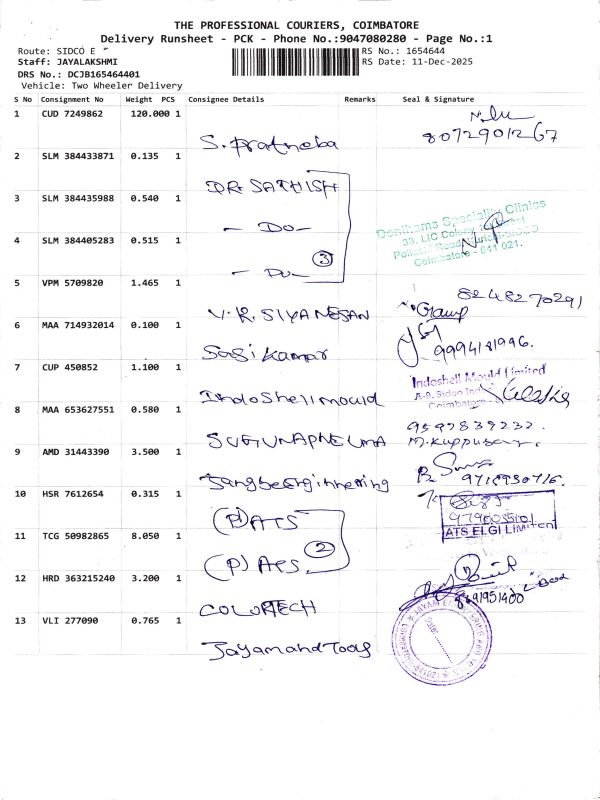 THE PROFESSIONAL COURIERS, COIMBATORE
Delivery Runsheet - PCK - Phone No.:9047080280 - Page No.:1
Route: SIDCO E
RS No.: 1654644
Staff: JAYALAKSHMI
RS Date: 11-Dec-2025
DRS No.: DCJB165464401
Vehicle: Two Wheeler Delivery
S No Consignment No Weight PCS Consignee Details Remarks Seal & Signature
1 CUD 7249862 120.000 1
8072901267
S. Pratheba
2 SLM 384433871 0.135 1
DR SATHISH
3 SLM 384435988 0.540 1
- Do -
Speciality Clinics
33, LIC Colony
4 SLM 384405283 0.515 1
Coimbatore - 641 021.
3
- Do -
5 VPM 5709820 1.465 1
8248270291
V. R. SIVANESAN
6 MAA 714932014 0.100 1
9994181996.
Sasi kumar
7 CUP 450852 1.100 1
Indoshell Mould Limited
Coimbatore
Indo Shell mould
8 MAA 653627551 0.580 1
9597839232.
SUGUNAPNEUMA
M. Kuppusamy.
9 AMD 31443390 3.500 1
9718930716.
10 HSR 7612654 0.315 1
(P) ATS
ATS ELGI LIMITED
11 TCG 50982865 8.050 1
2
(P) ATS.
12 HRD 363215240 3.200 1
8891951400
COLORTECH
13 VLI 277090 0.765 1
Jayamand Tools